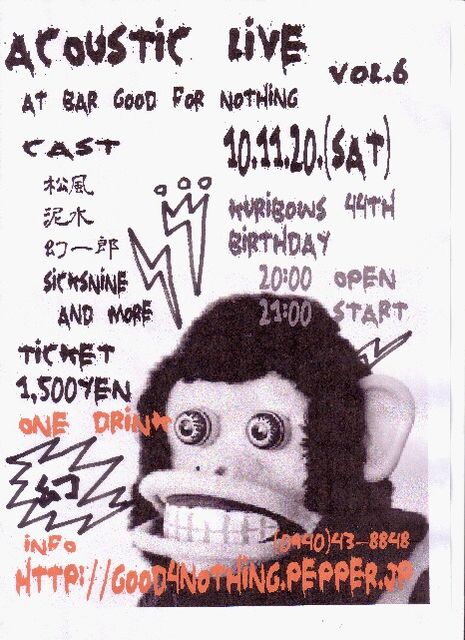 ACOUSTIC LIVE
VOL.6
AT BAR GOOD FOR NOTHING
CAST
松風
泥水
幻一郎
SICKSNINE
AND MORE
10.11.20.(SAT)
KURIBOWS 44TH
BIRTHDAY
20:00 OPEN
21:00 START
TICKET
1,500YEN
ONE DRINK
幻
INFO
(0940)43-8848
HTTP://GOOD4NOTHING.PEPPER.JP